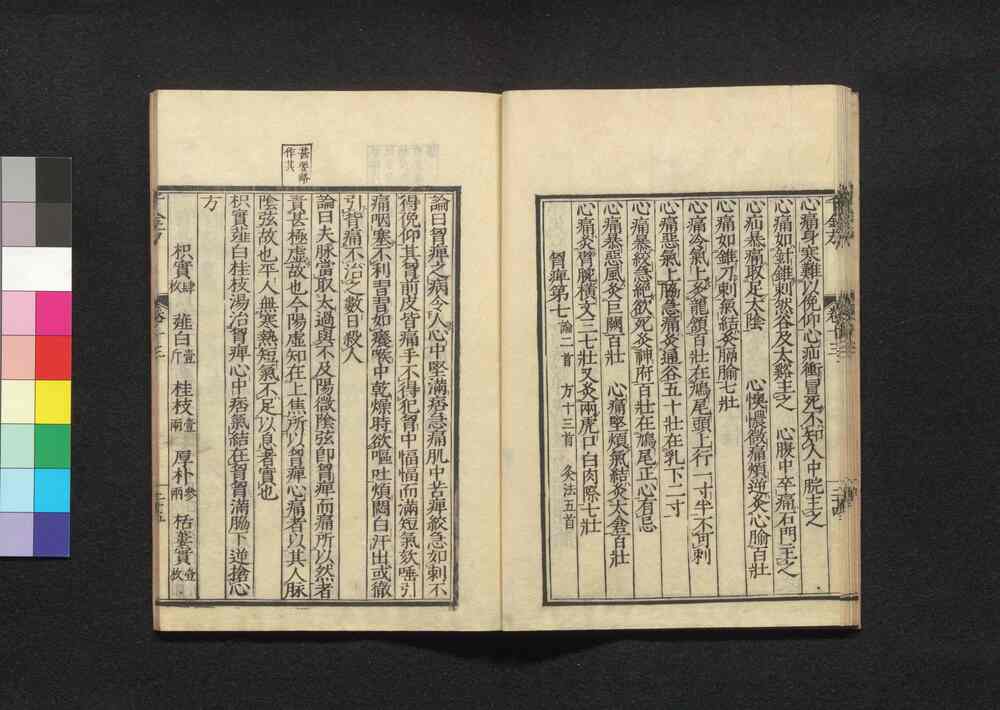 心痛身寒難以俛仰心疝衝冒死不知人中脘主之
心痛如針錐刺然谷及太谿主之　心腹中卒痛石門主之
心疝暴痛取足太陰　心懊憹微痛煩逆灸心腧百壯
心痛如錐刀刺氣結灸膈腧七壯
心痛冷氣上灸龍頷百壯在鳩尾頭上行一寸半不可刺
心痛惡氣上脇急痛灸通谷五十壯在乳下二寸
心痛暴絞急絕欲死灸神府百壯在鳩尾正心有忌
心痛暴惡風灸巨闕百壯　心痛堅煩氣結灸太倉百壯
心痛灸臂腕橫文三七壯又灸兩虎口白肉際七壯
胷痺第七論二首　方十三首　灸法五首
論曰胷痺之病令人心中堅滿痞急痛肌中苦痺絞急如刺不
得俛仰其胷前皮皆痛手不得犯胷中愊愊而滿短氣欬唾引
痛咽塞不利習習如癢喉中乾燥時欲嘔吐煩悶白汗出或徹
引背痛不治之數日殺人
論曰夫脉當取太過與不及陽微陰弦即胷痺而痛所以然者
責其極虛故也今陽虛知在上焦所以胷痺心痛者以其人脉
陰弦故也平人無寒熱短氣不足以息者實也
枳實薤白桂枝湯治胷痺心中痞氣結在胷胷滿脇下逆搶心
方
枳實肆枚　薤白壹斤　桂枝壹兩　厚朴參兩　栝蔞實壹枚